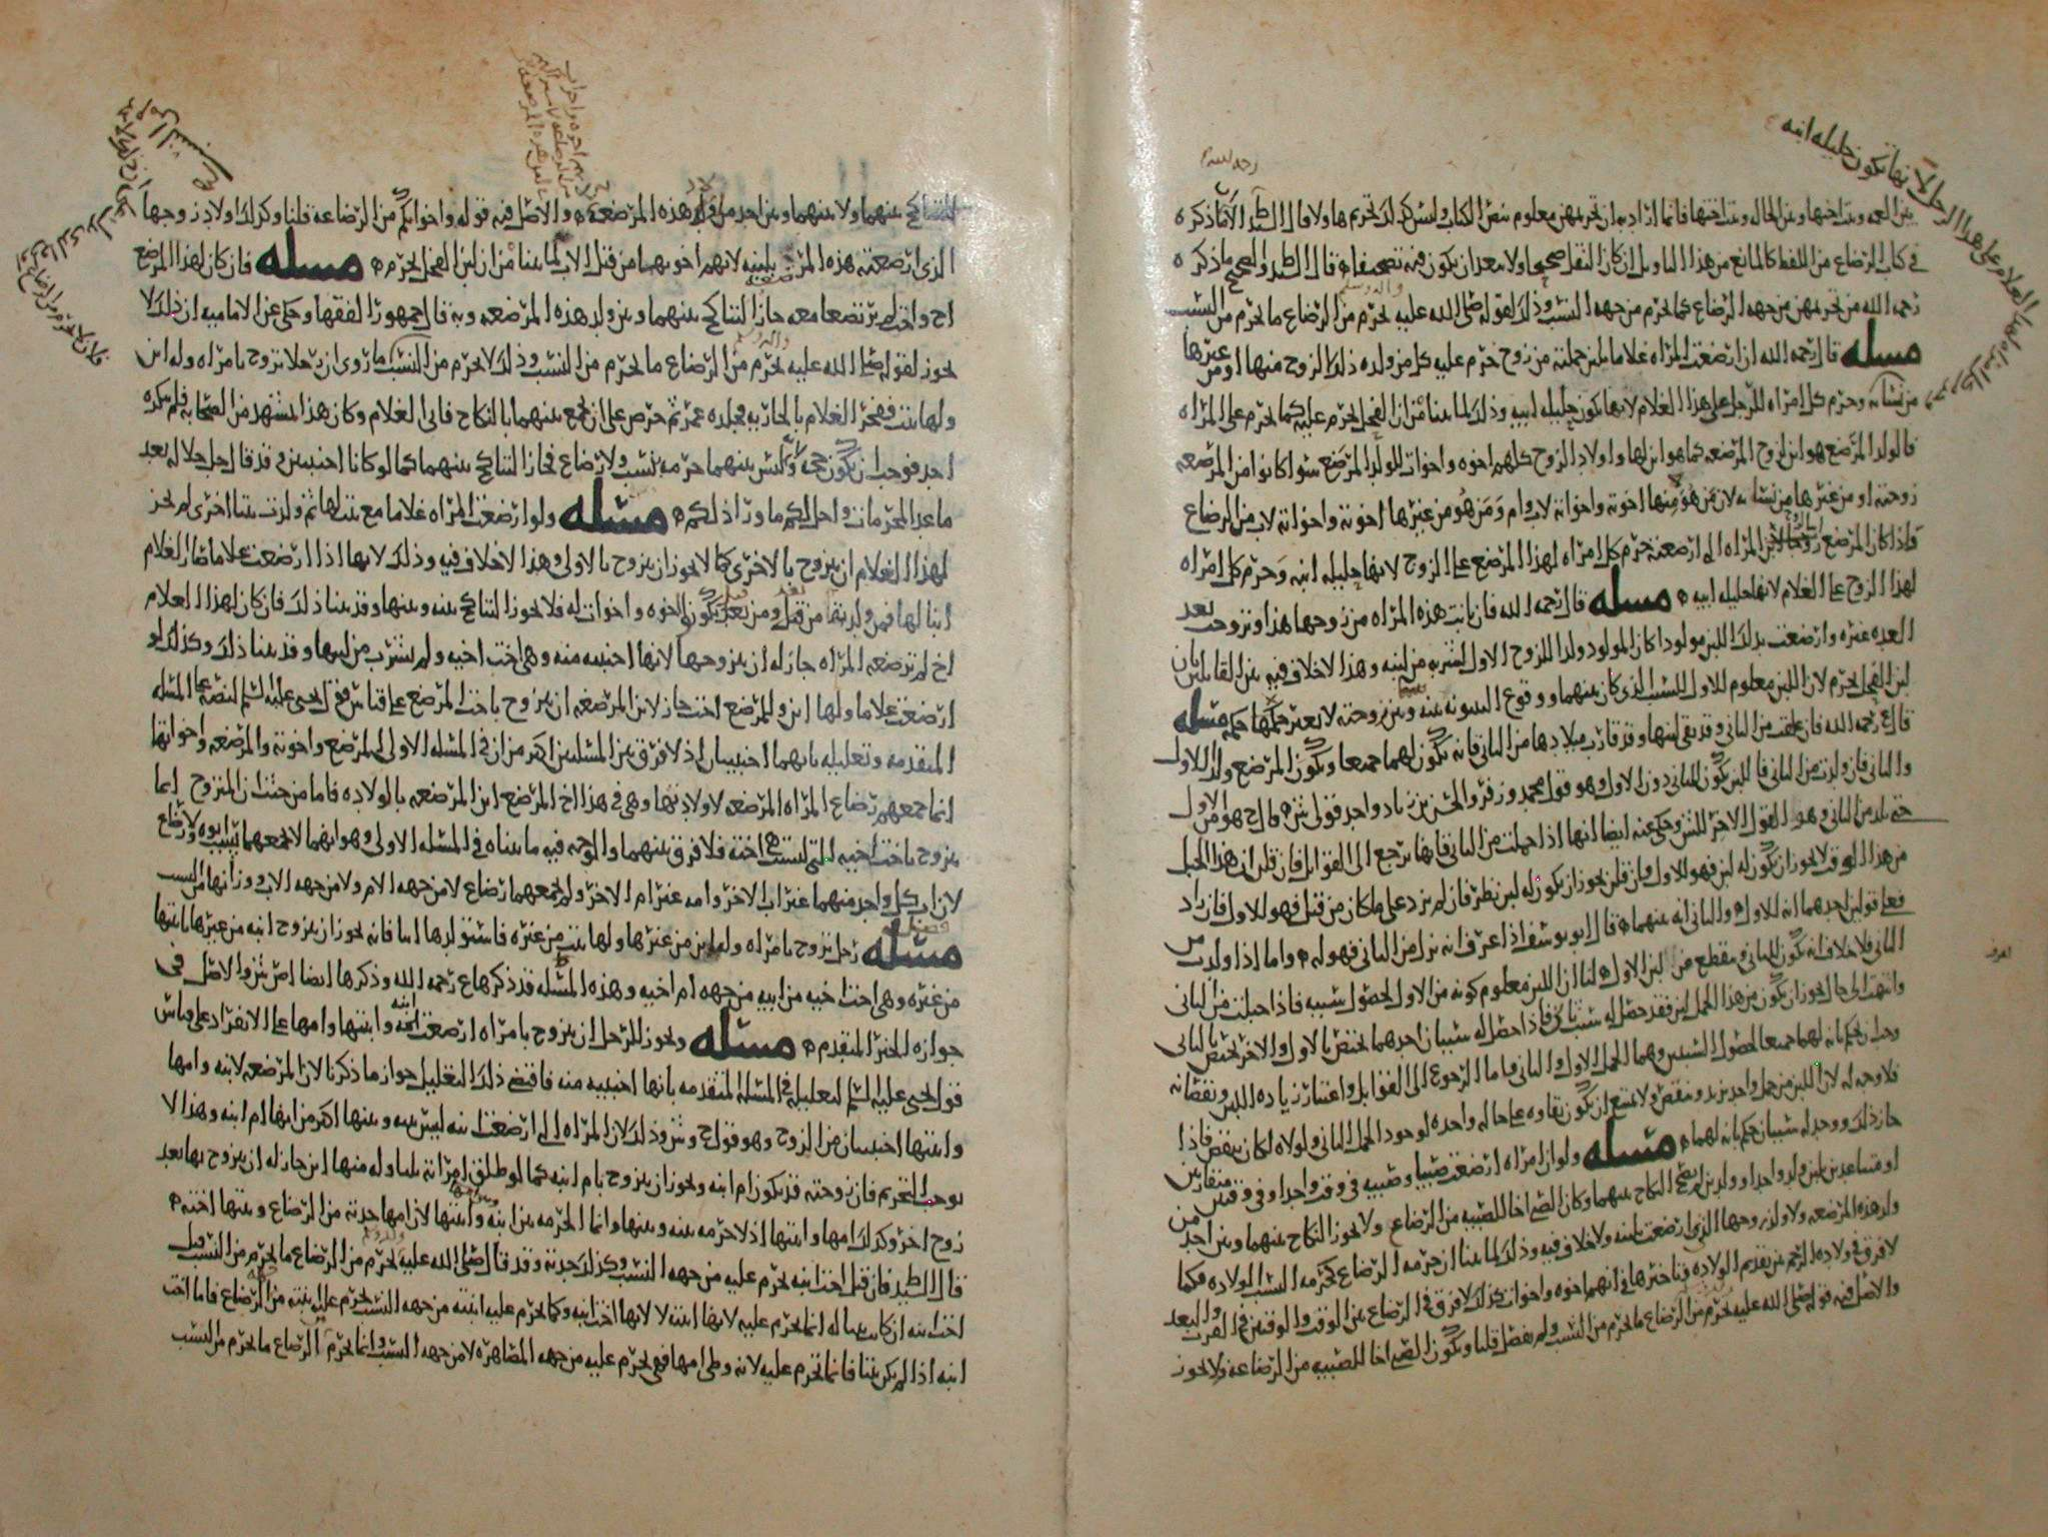 بين العمه وبنت اختها وبين الخاله وبنت اختها فانما اراد به ان تحريمهن معلوم بنص الكتاب وليس كذلك تحريم هاولا قال السيد الامام ما ذكره
في كتاب الرضاع من اللفظ كالمانع من هذا التاويل ان كان النقل صحيحا ولا يبعد ان يكون فيه تصحيف قال السيد والصحيح ما ذكره
رحمه الله من تحريمهن من جهه الرضاع كما يحرم من جهه النسب وذلك لقوله صلى الله عليه يحرم من الرضاع ما يحرم من النسب
مسله قال رحمه الله ان ارضعت المراه غلاما بلبن حملته من زوج حرم عليه كل من ولده ذلك الزوج منها او من غيرها
من نسائه وحرم كل امراه للرجل على هذا الغلام لانها تكون حليله ابيه وذلك لما بينا من ان لبن الفحل يحرم عليه كما يحرم على المراه
فالولد المرضع هو ابن لزوج المرضعه كما هو ابن لها واولاد الزوج كلهم اخوه واخوات للولد المرضع سوا كانوا من المرضعه
زوجته او من غيرها من نسائه لان من هو منها اخوته واخواته لاب وام ومن هو من غيرها اخوته واخواته لاب من الرضاع
فاذا كان المرضع ابن المراه التي ارضعته حرم كل امراه لهذا المرضع على الزوج لانها حليله ابنه وحرم كل امراه
لهذا الزوج على الغلام لانها حليله ابيه مسله قال رحمه الله فان بانت هذه المراه من زوجها هذا وتزوجت بعد
العده غيره وارضعت بذلك اللبن مولودا كان المولود ولدا للزوج الاول لشربه من لبنه وهذا لا خلاف فيه بين القايلين بان
لبن الفحل يحرم لان اللبن معلوم للاول للسبب الذي كان بينهما ووقوع البينونه بينه وبين زوجته لا يغير حكمها مسله
قال رحمه الله فان علقت من الثاني وقد بقي لبنها وقد قارب ميلادها من الثاني فانه يكون لهما جميعا ويكون المرضع ولد للاول
والثاني فان ولدت من الثاني فاللبن يكون للثاني دون الاول وهو قول محمد وزفر والحسن بن زياد واحد قولي ش قال ح هو من الاول
حتى تلد من الثاني وهو القول الاخر للش وحكي عنه ايضا انها اذا حملت من الثاني فانها ترجع الى القوابل فان قلن ان هذا الحبل
من هذا الوقت لا يجوز ان يكون له لبن فهو للاول فان قلن يجوز ان يكون له لبن نظر فان لم يزد على ما كان من قبل فهو للاول فان زاد
فعلى قولين احدهما انه للاول والثاني انه بينهما قال ابو يوسف اذا عرف انه نزل من الثاني فهو له واما اذا ولدت من
الثاني فلا خلاف انه يكون للثاني وينقطع من لبن الاول لنا ان اللبن معلوم كونه من الاول لحصول سببه فاذا حبلت من الثاني
وانتهت الى حال يجوز ان يكون من هذا الحمل لبن فقد حصل له سبب ثان فاذا حصل له سببان احدهما يختص بالاول والاخر يختص بالثاني
وجب ان يحكم بانه لهما جميعا لحصول السببين وهما الحمل الاول والثاني فاما الرجوع الى القوابل واعتبار زياده اللبن ونقصانه
فلا وجه له لان اللبن من حمل واحد يزيد وينقص ولا يمتنع ان يكون بقاوه على حاله واحده لوجود الحمل الثاني ولولاه لكان ينقص فاذا
جاز ذلك ووجد له سببان حكم بانه لهما مسله ولو ان امراه ارضعت صبيا وصبيه في وقت واحد او في وقتين متقاربين
او متباعدين بلبن ولد واحد او ولدين لم يصح النكاح بينهما وكان الصبي اخا للصبيه من الرضاع ولا يجوز النكاح بينهما وبين احد من
ولد هذه المرضعه ولا ولد زوجها الذي ارضعت بلبنه ولا خلاف فيه وذلك لما بينا ان حرمه الرضاع كحرمه النسب الولاده فكما
لا فرق في ولاده الرحم بين تقديم الولاده وتاخيرها في انهما اخوه واخوات كذلك لا فرق في الرضاع بين الوقت والوقتين في القرب والبعد
والاصل فيه قوله صلى الله عليه يحرم من الرضاع ما يحرم من النسب ولم يفصل قلنا ويكون الصبي اخا للصبيه من الرضاعه ولا يجوز
رحمه الله
التناكح بينهما ولا بينهما وبين احد من قرابه هذه المرضعه والاصل فيه قوله واخواتكم من الرضاعه قلنا وكذلك اولاد زوجها
الذي ارضعته هذه المرضعه بلبنه لانهم اخوتهما من قبل الاب لما بينا من ان لبن الفحل يحرم مسله فان كان لهذا المرضع
اخ واخت لم يرتضعا معه جاز التناكح بينهما وبين ولد هذه المرضعه وبه قال جمهور الفقها وحكي عن الاماميه ان ذلك لا
يجوز لقوله صلى الله عليه يحرم من الرضاع ما يحرم من النسب وذلك لا يحرم من النسب ما روي ان رجلا تزوج بامراه وله ابن
ولها بنت ففجر الغلام بالجاريه فجلده عمر ثم حرص على ان يجمع بينهما بالنكاح فابى الغلام وكان هذا بمشهد من الصحابه فلم ينكره
احد فوجب ان يكون حجه ولانه ليس بينهما حرمه بنسب ولا رضاع فجاز التناكح بينهما كما لو كانا اجنبيين وقد قال جل جلاله بعد
ما عد المحرمات واحل لكم ما ورا ذلكم مسله ولو ارضعت المراه غلاما مع بنت لها ثم ولدت بنتا اخرى لم يجز
لهذا الغلام ان يتزوج بالاخرى كما لا يجوز ان يتزوج بالاولى وهذا لا خلاف فيه وذلك لانها اذا ارضعت غلاما صار الغلام
ابنا لها فمن ولدته من قبل ومن بعد يكون اخوه واخوات له فلا يجوز التناكح بينه وبينها وقد بينا ذلك فان كان لهذا الغلام
اخ لم ترضعه المراه جاز له ان يتزوجها لانها اجنبيه منه وهي اخت اخيه ولم يشرب من لبنها وقد بينا ذلك وكذلك لو
ارضعت غلاما ولها ابن وللمرضع اخت جاز لابن المرضعه ان يتزوج باخت المرضع على قياس قول يحيى عليه السلم لنصه على المسله
المتقدمه وتعليله بانهما اجنبيان اذ لا فرق بين المسلتين اكثر من ان في المسله الاولى المرضع واخوته والمرضعه واخواتها
انما جمعهم رضاع المراه المرضعه لاولادها وهي في هذا اخ المرضع ابن المرضعه بالولاده فاما من حيث ان المتزوج انما
يتزوج باخت اخيه التي ليست هي اخته فلا فرق بينهما والوجه فيه ما بيناه في المسله الاولى وهو انهما لا يجمعهما نسب ابوه ولا رضاع
لان اب كل واحد منهما غير اب الاخر وامه غير ام الاخر ولم يجمعهما رضاع لا من جهه الام ولا من جهه الاب
مسله رجل تزوج بامراه وله ابن من غيرها ولها بنت من غيره فاستولدها ابنا فانه يجوز ان يتزوج ابنه من غيرها بابنتها
من غيره وهي اخت اخيه من ابيه من جهه ام اخيه وهذه المسله قد ذكرها رحمه الله وذكرها ايضا والاصل في
جوازه الخبر المتقدم مسله ويجوز للرجل ان يتزوج بامراه ارضعت ابنه وابنتها وامها على الانفراد على قياس
قول يحيى عليه السلم لتعليله في المسله المتقدمه بانها اجنبيه منه فاقتضى ذلك التعليل جواز ما ذكرنا لان المرضعه لابنه وامها
وابنتها اجنبيات من الزوج وهو قول ح وش وذلك لان المراه التي ارضعت ابنه ليس بينه وبينها اكثر من انها ام ابنه وهذا لا
يوجب التحريم فان زوجته قد تكون ام ابنه ويجوز ان يتزوج بام ابنه كما لو طلق امراته بلبا وله منها ابن جاز له ان يتزوج بها بعد
زوج اخر وكذلك امها وابنتها اذ لا حرمه بينه وبينها وانما الحرمه بين ابنه وابنتها لان امها جدته من الرضاع وبنتها اخته
قال السيد فان قيل اخت ابنه تحرم عليه من جهه النسب وكذلك جدته وقد قال صلى الله عليه يحرم من الرضاع ما يحرم من النسب قيل
اخت ابنه ان كانت بنتا له انما تحرم عليه لانها ابنته لا لانها اخت ابنه وكما تحرم عليه ابنته من جهه النسب تحرم عليه ابنته من الرضاع فاما اخت
ابنه اذا لم تكن بنتا فانما تحرم عليه لانه وطي امها فهي تحرم عليه من جهه المصاهره لا من جهه النسب وانما يحرم من الرضاع ما يحرم من النسب